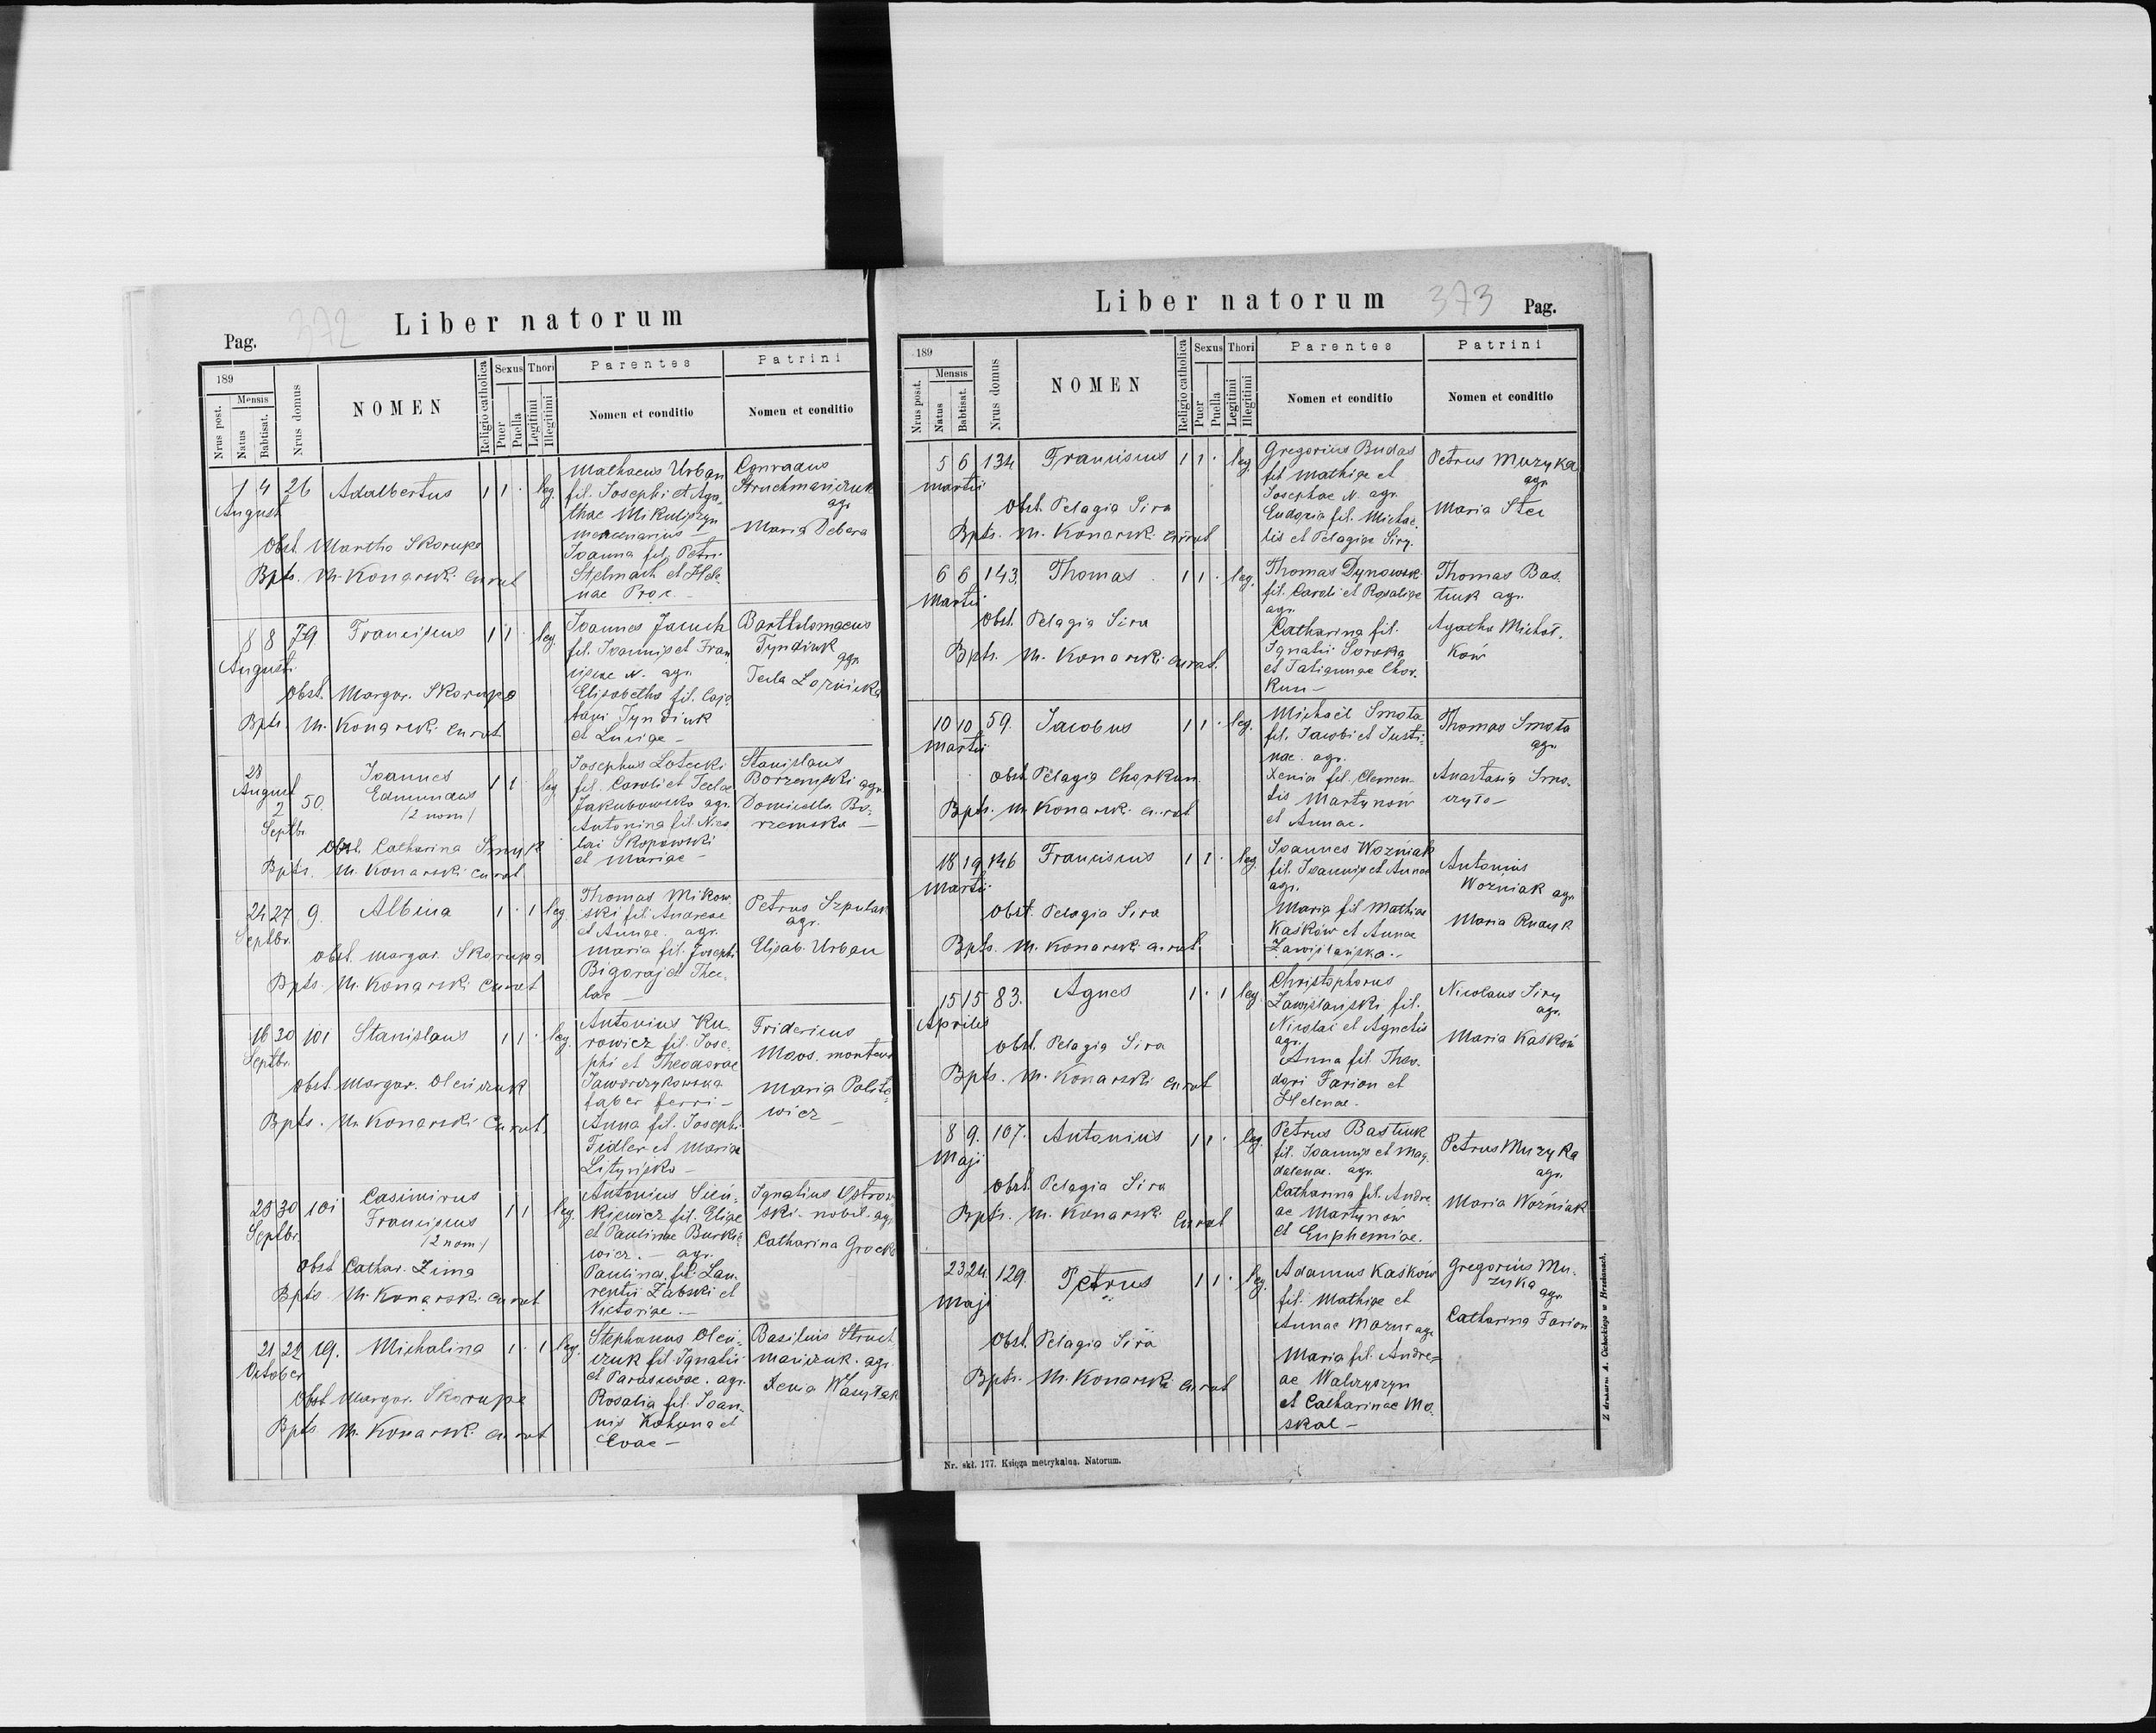 372
Liber natorum
Pag.
189
Mensis
Nrus post.
Natus
Babtisat.
Nrus domus
NOMEN
Religio catholica
Sexus
Puer
Puella
Thori
Legitimi
Illegitimi
Parentes
Nomen et conditio
Patrini
Nomen et conditio
1 4 26 Adalbertus 1 1 · leg.
August
Obst. Martha Skorupa
Bpts. M. Konarski curat
Mathaeus Urban
fil. Josephi et Aga-
thae Mikuliszyn
mercenarius
Joanna fil. Petri
Stelmach et Hele-
nae Proc. -
Conradus
Struchmańczuk
agr.
Maria Debera
8 8 79 Franciscus 1 1 · leg.
Augusti
Obst. Margar. Skorupa
Bpts. M. Konarski curat
Joannes Jacuch
fil. Joannis et Fran
ciscae N. agr.
Elisabetha fil. Caje
tani Tyndiuk
et Luciae -
Bartholomaeus
Tyndiuk
agr.
Tecla Loznicka
28
August
2 50.
Septbr.
Joannes
Edmundus
/2 nom/
1 1 · leg
Obst. Catharina Smyk
Bpts. M. Konarski curat
Josephus Lotecki
fil. Caroli et Teclae
Jakubowska agr.
Antonina fil. Nico
lai Skopowski
et Mariae -
Stanislaus
Borzemski agr.
Domicella Bo-
rzemska -
24 27 9. Albina 1 · 1 leg.
Septbr.
Obst. Margar. Skorupa
Bpts. M. Konarski curat
Thomas Mikow
ski fil. Andreae
et Annae. agr.
Maria fil. Josephi
Bigoraj et Thec-
lae -
Petrus Szpulak
agr.
Elisab. Urban
16 30 101 Stanislaus 1 1 · leg.
Septbr.
Obst. Margar. Oleńczuk
Bpts. M. Konarski Curat.
Antonius Ku-
rowicz fil. Jose-
phi et Theodorae
Jaworczykowska
faber ferri -
Anna fil. Josephi
Fidler et Mariae
Lityńska -
Fridericus
Moos. monteur
Maria Polito-
wicz -
25 30 101 Casimirus
Septbr.
Franciscus
/2 nom/
1 1 leg.
Obst. Cathar. Zima
Bpts. M. Konarski curat
Antonius Sień-
kiewicz fil. Eliae
et Paulinae Burkie
wicz. - agr.
Paulina fil. Lau-
rentii Żabski et
Victoriae. -
Ignatius Ostrow
ski. nobil. agr
Catharina Grocka
21 22 19. Michalina 1 · 1 leg.
October
Obst Margar. Skorupa
Bpts M. Konarski curat
Stephanus Oleń-
czuk fil. Ignatii
et Parascevae. agr.
Rosalia fil. Joan-
nis Kohuna et
Evae -
Basilius Struch
mańczuk. agr.
Xenia Wasylak
Liber natorum
373
Pag.
189
Mensis
Nrus post.
Natus
Babtisat.
Nrus domus
NOMEN
Religio catholica
Sexus
Puer
Puella
Thori
Legitimi
Illegitimi
Parentes
Nomen et conditio
Patrini
Nomen et conditio
5 6 134 Franciscus 1 1 · leg.
Martii
Obst. Pelagia Sira
Bpts. M. Konarski curat
Gregorius Budas
fil Mathiae et
Josephae N. agr.
Eudoxia fil. Michae-
lis et Pelagiae Siry.
Petrus Muzyka
agr.
Maria Stec
6 6 143. Thomas 1 1 · leg.
Martii
Obst. Pelagia Sira
Bpts. M. Konarski curat.
Thomas Dynowsk
fil. Caroli et Rosaliae
agr.
Catharina fil.
Ignatii Soroka
et Tatiannae Char-
kun -
Thomas Bas-
tiuk agr.
Agatha Michał-
ków
10 10 59. Jacobus 1 1 · leg.
Martii
Obst. Pelagia Charkun
Bpts. M. Konarski curat
Michaël Smota
fil. Jacobi et Justi-
nae. agr.
Xenia fil. Clemen-
tis Martynów
et Annae.
Thomas Smota
agr.
Anastasia Smo-
czyło -
18 19 146 Franciscus 1 1 · leg.
Martii
Obst. Pelagia Sira
Bpts. M. Konarski curat
Joannes Woźniak
fil. Joannis et Annae
agr.
Maria fil Mathiae
Kaśków et Annae
Zawiślańska. -
Antonius
Woźniak agr
Maria Knayk
15 15 83. Agnes 1 · 1 leg
Aprilis
Obst. Pelagia Sira
Bpts. M. Konarski curat
Christophorus
Zawiślański fil.
Nicolai et Agnetis
agr.
Anna fil. Theo-
dori Farion et
Helenae -
Nicolaus Siry
agr.
Maria Kaśków
8 9. 107. Antonius 1 1 · leg.
Maji
Obst. Pelagia Sira
Bpts. M. Konarski Curat
Petrus Bastiuk
fil. Joannis et Mag-
dalenae. agr.
Catharina fil. Andre
ae Martynów
et Euphemiae.
Petrus Muzyka
agr.
Maria Woźniak
23 24 129. Petrus 1 1 · leg.
Maji
Obst. Pelagia Sira
Bpts. M. Konarski curat
Adamus Kaśków
fil. Mathiae et
Annae Mazur agr
Maria fil. Andre=
ae Walczyszyn
et Catharinae Mo-
skal -
Gregorius Mu-
zyka
agr.
Catharina Farion
Nr. skł. 177. Księga metrykalna. Natorum.
Z drukarni A. Cichockiego w Brzeżanach.